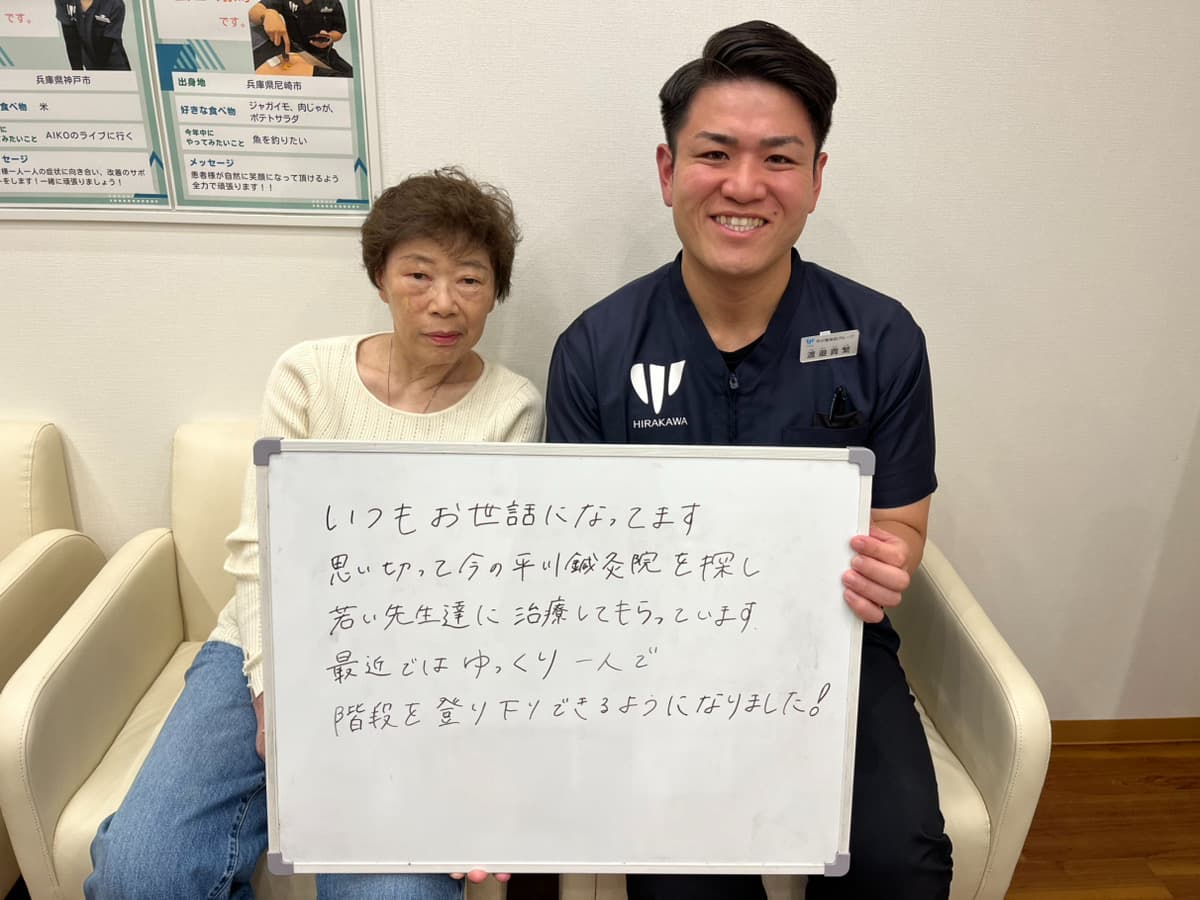 です。
兵庫県神戸市
食べ物 米
てみたいこと AIKOのライブに行く
セージ
様一人一人の症状に向き合い、改善のサポ
をします!一緒に頑張りましょう!
です。
出身地 兵庫県尼崎市
好きな食べ物 ジャガイモ、肉じゃが、
ポテトサラダ
今年中に
やってみたいこと 魚を釣りたい
メッセージ
患者様が自然に笑顔になって頂けるよう
全力で頑張ります!!
HIRAKAWA
いつもお世話になってます
思い切って今の平川鍼灸院を探し
若い先生達に治療してもらっています.
最近ではゆっくり一人で
階段を登り下りできるようになりました!